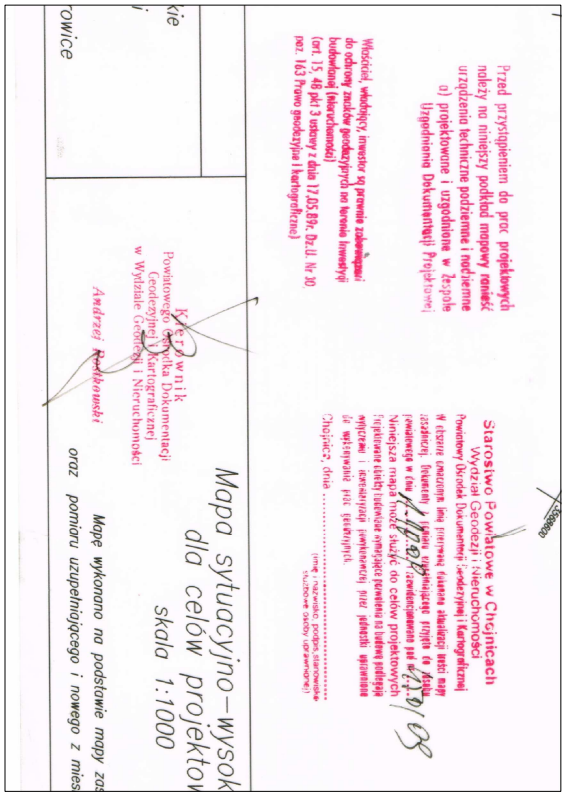 Przed przystąpieniem do prac projektowych
należy na niniejszy podkład mapowy nanieść
urządzenia techniczne podziemne i nadziemne
a) projektowane i uzgodnione w Zespole
Uzgodniania Dokumentacji Projektowej
Właściciel, władający, inwestor są prawnie zobowiązani
do ochrony znaków geodezyjnych na terenie inwestycji
budowlanej (nieruchomości)
(art. 15, 48 pkt 3 ustawy z dnia 17.05.89r. Dz.U. Nr 30
poz. 163 Prawo geodezyjne i kartograficzne)
Starostwo Powiatowe w Chojnicach
Wydział Geodezji i Nieruchomości
Powiatowy Ośrodek Dokumentacji Geodezyjnej i Kartograficznej
W obszarze oznaczonym linią przerywaną dokonano aktualizacji treści mapy
zasadniczej. Dokumenty z pomiaru uzupełniającego przyjęto do zasobu
powiatowego w dniu zaewidencjonowano pod nr
Niniejsza mapa może służyć do celów projektowych
Projektowane obiekty budowlane wymagające pozwolenia na budowę podlegają
wytyczeniu i inwentaryzacji powykonawczej przez jednostki uprawnione
do wykonywania prac geodezyjnych.
Chojnice, dnia
(imię i nazwisko, podpis, stanowisko
służbowe osoby uprawnionej)
Kierownik
Powiatowego Ośrodka Dokumentacji
Geodezyjnej i Kartograficznej
w Wydziale Geodezji i Nieruchomości
Andrzej Rostkowski
kie
i
owice
Mapa sytuacyjno-wysok
dla celów projektow
skala 1:1000
Mapę wykonano na podstawie mapy zas
oraz pomiaru uzupełniającego i nowego z mies